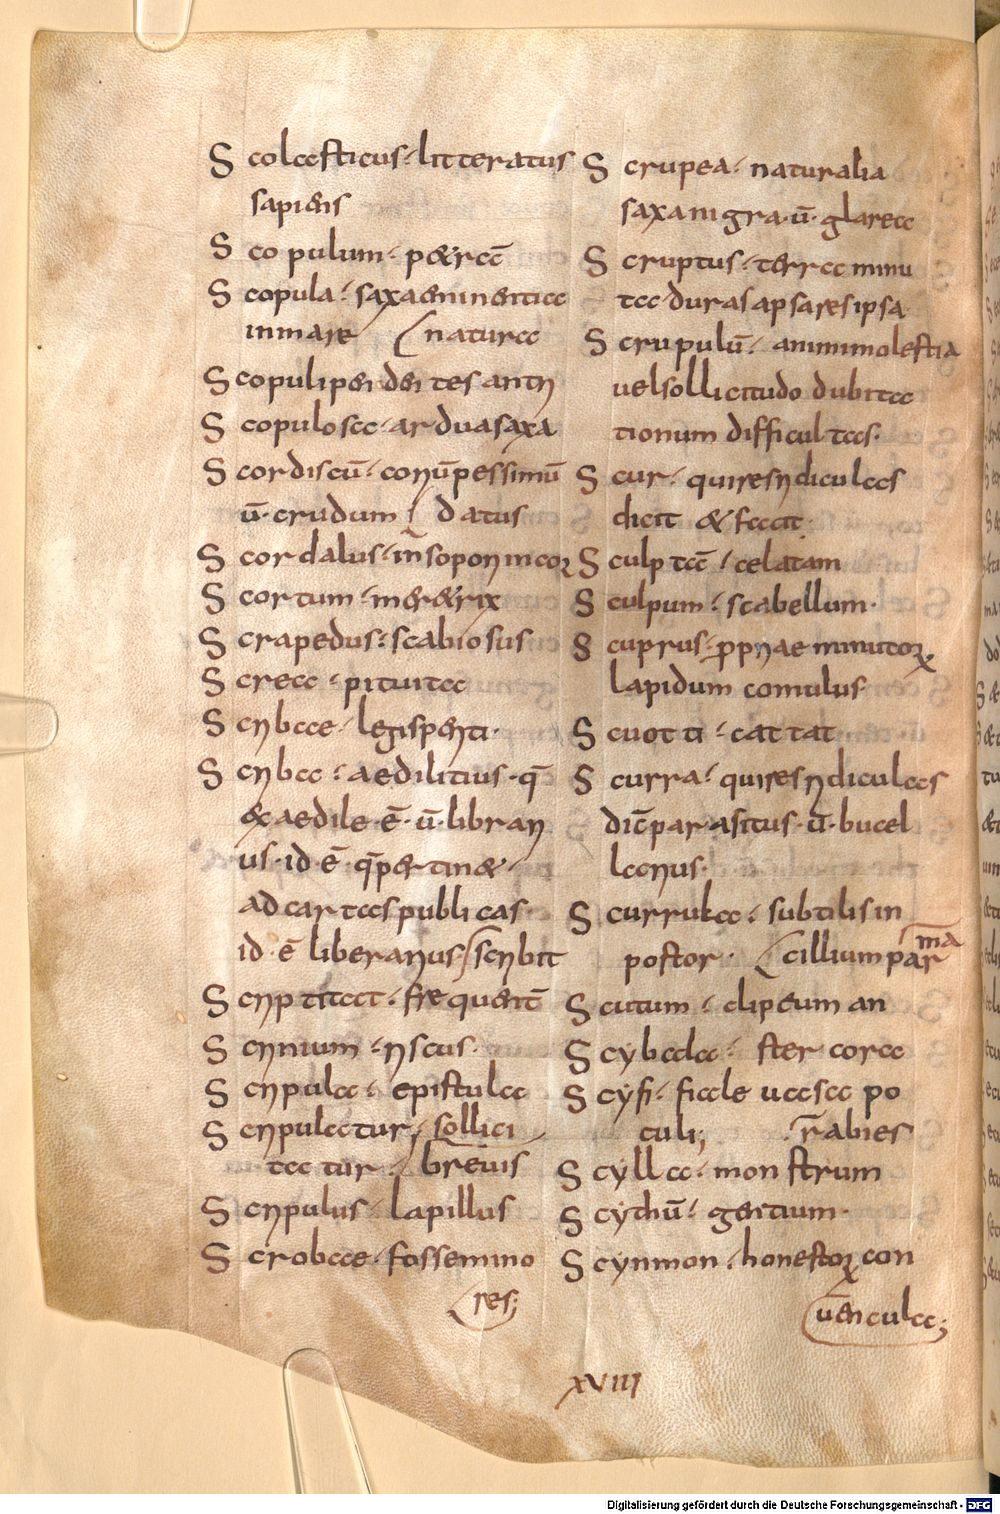 Scolasticus· litteratus
sapiens
Scopulum· petrā
Scopula· saxa eminentia
in mare (naturae
Scopuli pendentes antri
Scopulosa· ardua saxa
Scordiscū· coriū pessimū
ū· crudum ( datus
Scordalus· insopori incor
Scortum· meretrix
Scrapedus· scabiosus
Screa· pituita
Scribae· legis periti·
Scriba· aedilitius· q̄
& aedile ē· ū· librari
us· id ē q̄ pertinet
ad cartas publicas·
id ē liberarius (scribit
Scriptitat· frequent̄
Scrinium· riscus·
Scripula· epistula
Scripulatur· sollici
tatur· (brevis
Scripulus· lapillus
Scrobae· fosse mino
(res;
Scrupea· naturalia
saxa nigra· ū· glarea
Scruptus· terra minu
ta duras apsares ipsa
Scrupulū· animi molestia
vel sollicitudo dubita
tionum difficultas·
Scur· qui res ridiculas
dicit & facit·
Sculptā· celatam
Sculpum· scabellum·
Scuprus· p̄prie minutor
lapidum comulus·
Scuotti· cattat
Scurra· qui res ridiculas
dic̄ parasitus· ū· bucel
larius·
Scurrula· subtilis in
postor· (cillium parma
Scutum· clipeum an
Scybala· stercora
Scyfi· ficale uasa po
culi; ·r̄abies
Scylla· monstrum
Scythū· gentium·
Scynmon· honestor con
(uenicula;
xviii
Digitalisierung gefördert durch die Deutsche Forschungsgemeinschaft - DFG